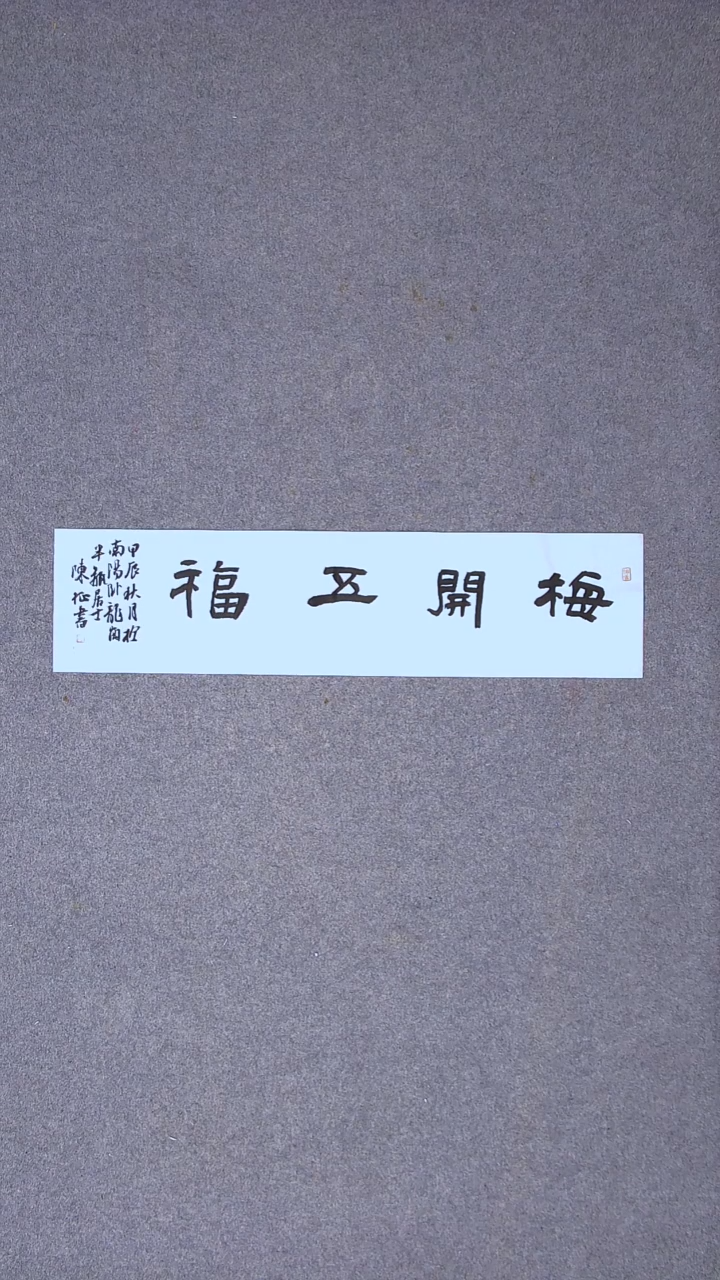 梅開五福
甲辰秋月於
南陽卧龍崗
半瓶居士
陳征書